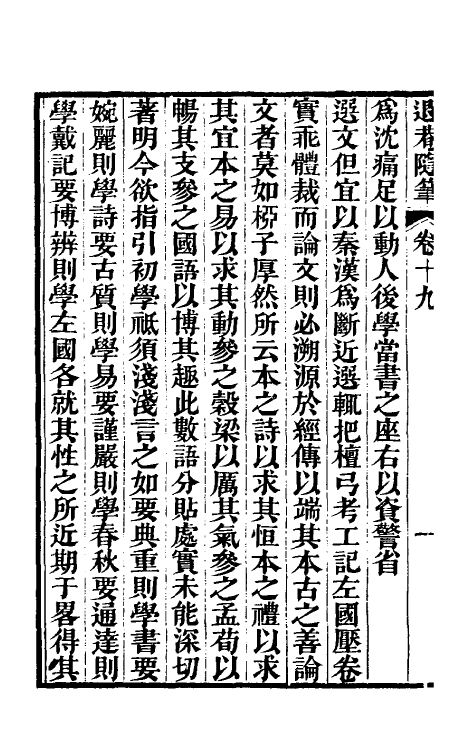 退菴隨筆 卷十九 一
爲沈痛足以動人後學當書之座右以資警省
選文但宜以秦漢爲斷近選輒把檀弓考工記左國壓卷
實乖體裁而論文則必溯源於經傳以端其本古之善論
文者莫如柳子厚然所云本之詩以求其恒本之禮以求
其宜本之易以求其動參之穀梁以厲其氣參之孟荀以
暢其支參之國語以博其趣此數語分貼處實未能深切
著明今欲指引初學祗須淺淺言之如要典重則學書要
婉麗則學詩要古質則學易要謹嚴則學春秋要通達則
學戴記要博辨則學左國各就其性之所近期于畧得其